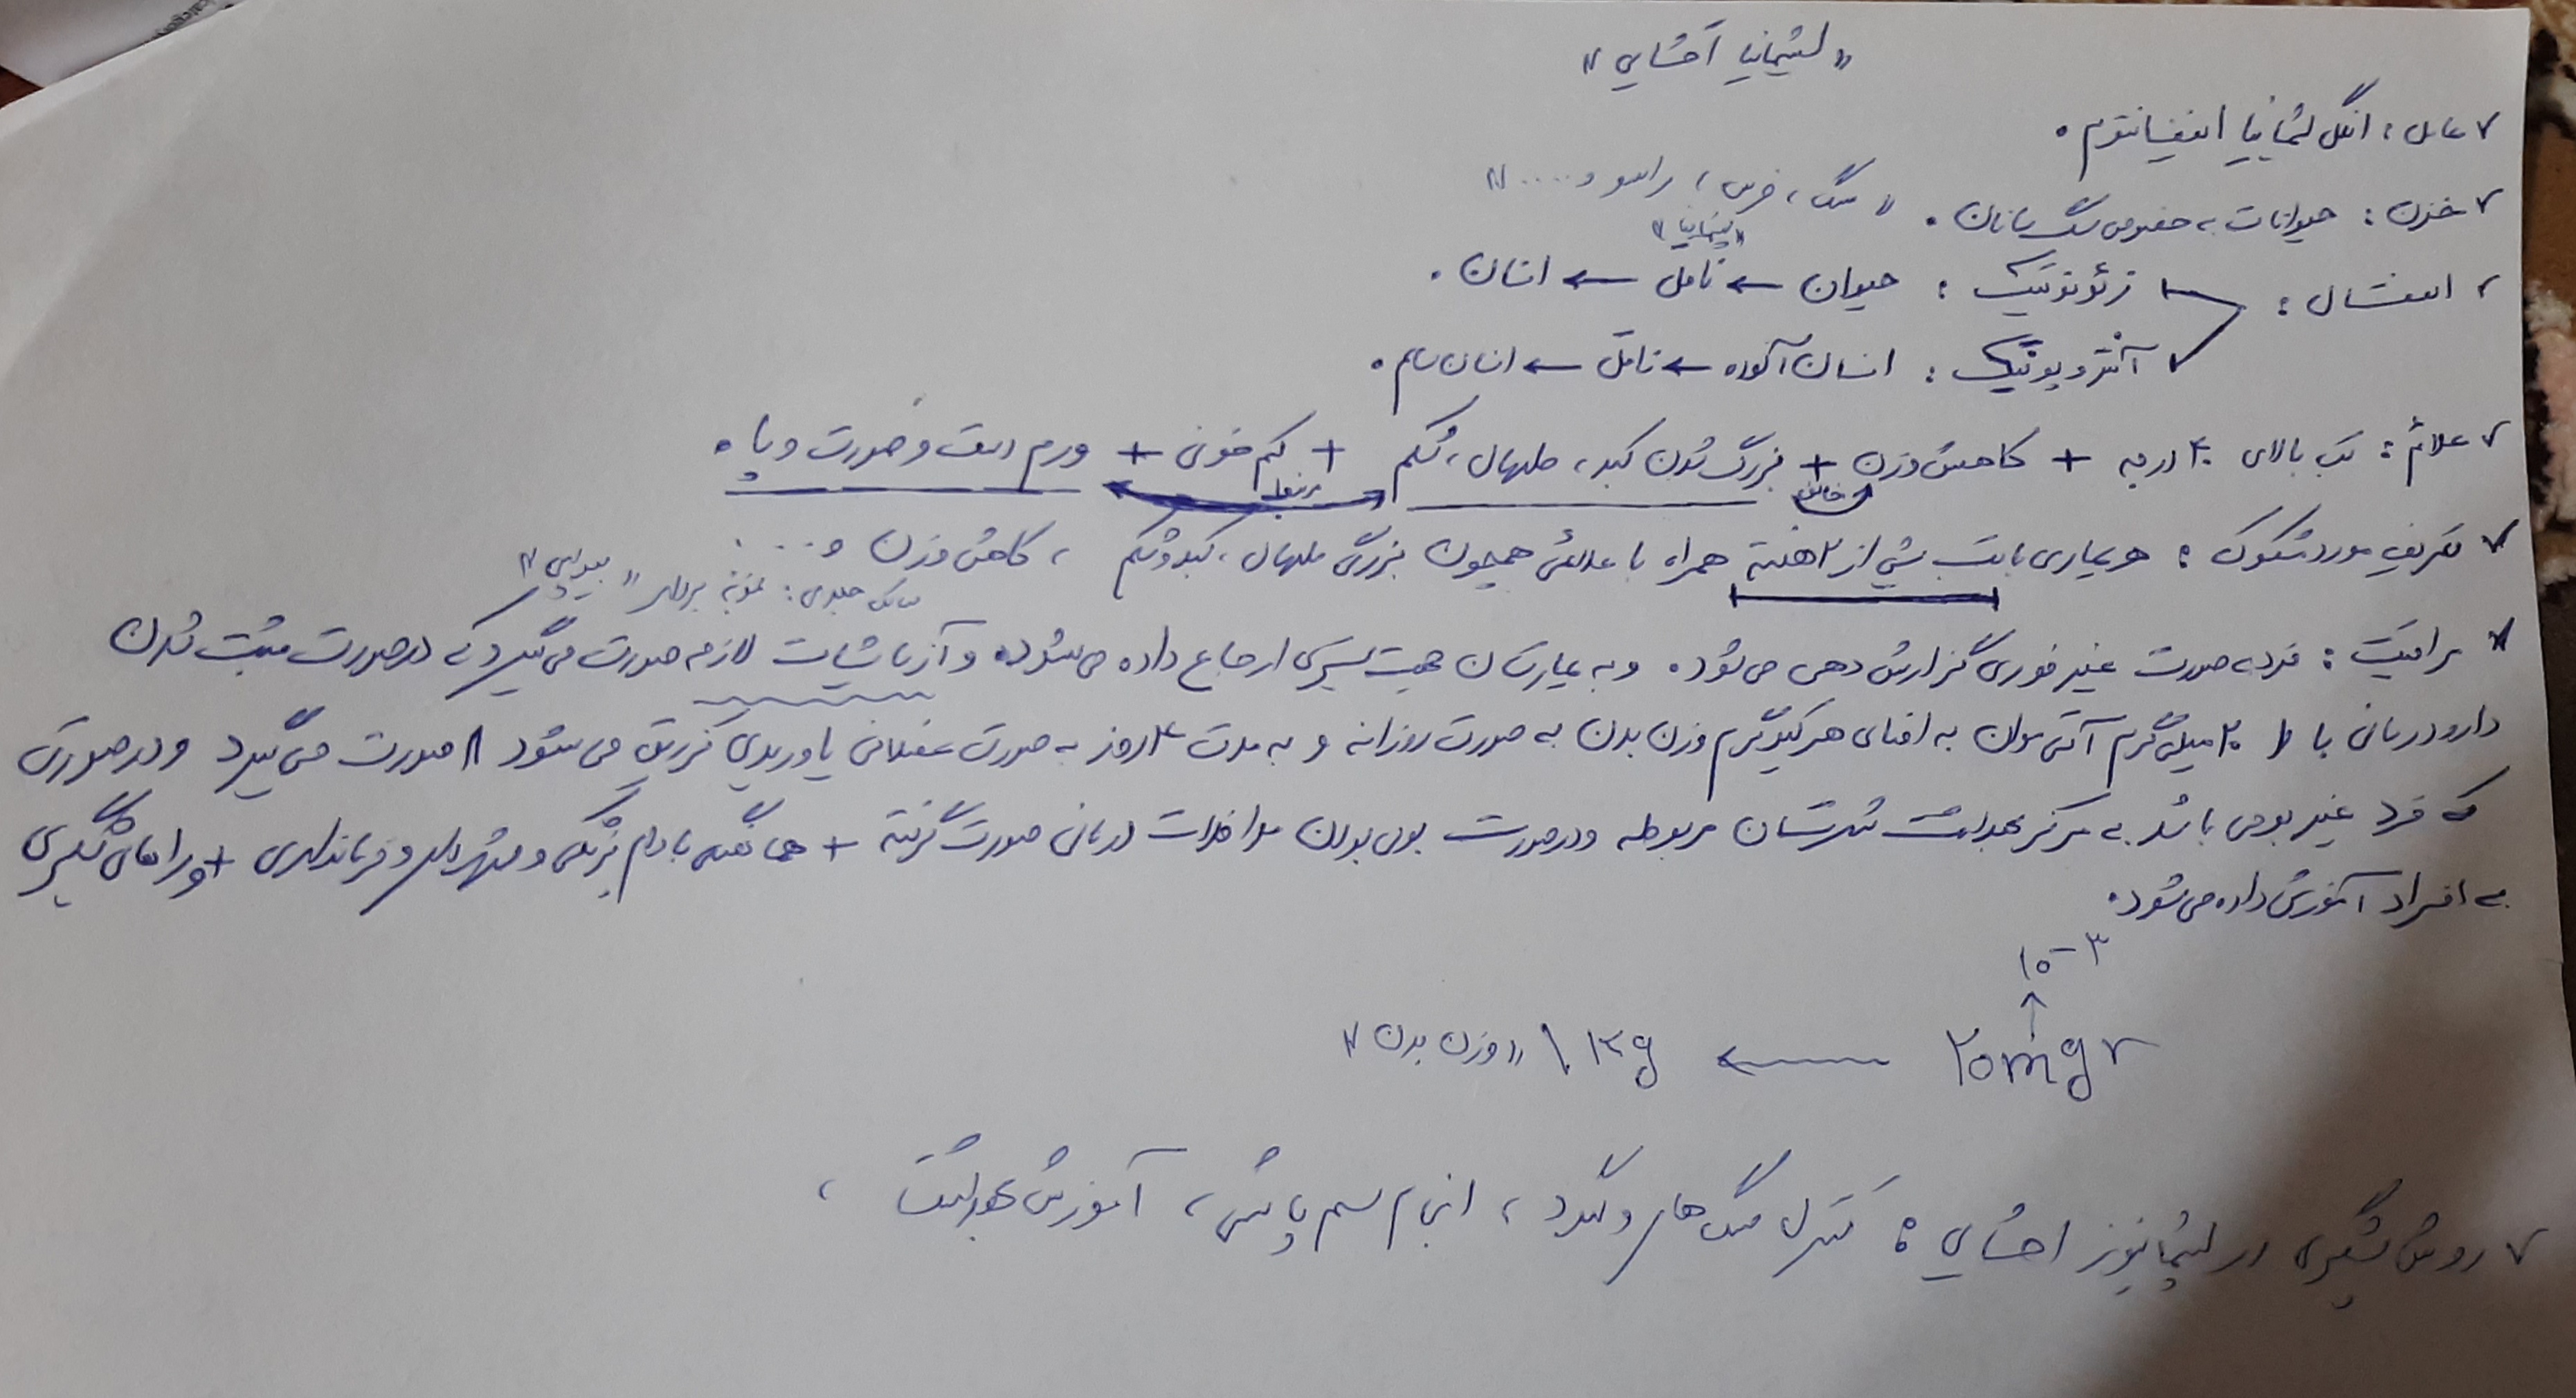 « لشمانیا احشایی »
✓ عامل : انگل لشمانیا اینفانتوم .
✓ مخزن : حیوانات به خصوص سگ سانان . « سگ ، خرس ، راسو و .... »
✓ انتشار : زئونوتیک : حیوان ← ناقل ← انسان .
آنتروپونتیک : انسان آلوده ← ناقل ← انسان سالم .
✓ علائم : تب بالای ۴۰ درجه + کاهش وزن + بزرگ شدن کبد ، طحال ، شکم + کم خونی + ورم دست و صورت و پا .
✓ تعریف مورد مشکوک : هر بیماری با تب بیش از ۲ هفته همراه با علائمی همچون بزرگی طحال ، کبد و شکم ، کاهش وزن و ....
سالک جلدی : نمونه برداری « بیوپسی »
✓ مراقبت : فرد به صورت غیر فوری گزارش دهی می شود . و به بیمارستان جهت بستری ارجاع داده می شود . و آزمایشات لازم صورت می گیرد که در صورت مثبت شدن
دارو درمانی با ۲۰ میلی گرم آنتی موان به ازای هر کیلوگرم وزن بدن به صورت روزانه و به مدت روز به صورت عضلانی یا وریدی تزریق می شود صورت می گیرد و در صورتی
که فرد غیر بومی باشد به مرکز بهداشت شهرستان مربوطه و در صورت بومی بودن مداخلات درمانی صورت گرفته + هماهنگی با دام پزشکی و شهرداری و فرمانداری + و راههای پیشگیری
به افراد آموزش داده می شود .
۱۰ -۳
↑
۲۰mgr ← ۱kg \ « وزن بدن »
✓ روش پیشگیری در لشمانیوز احشایی : کنترل سگ های ولگرد ، انجام سم پاشی ، آموزش بهداشت ،